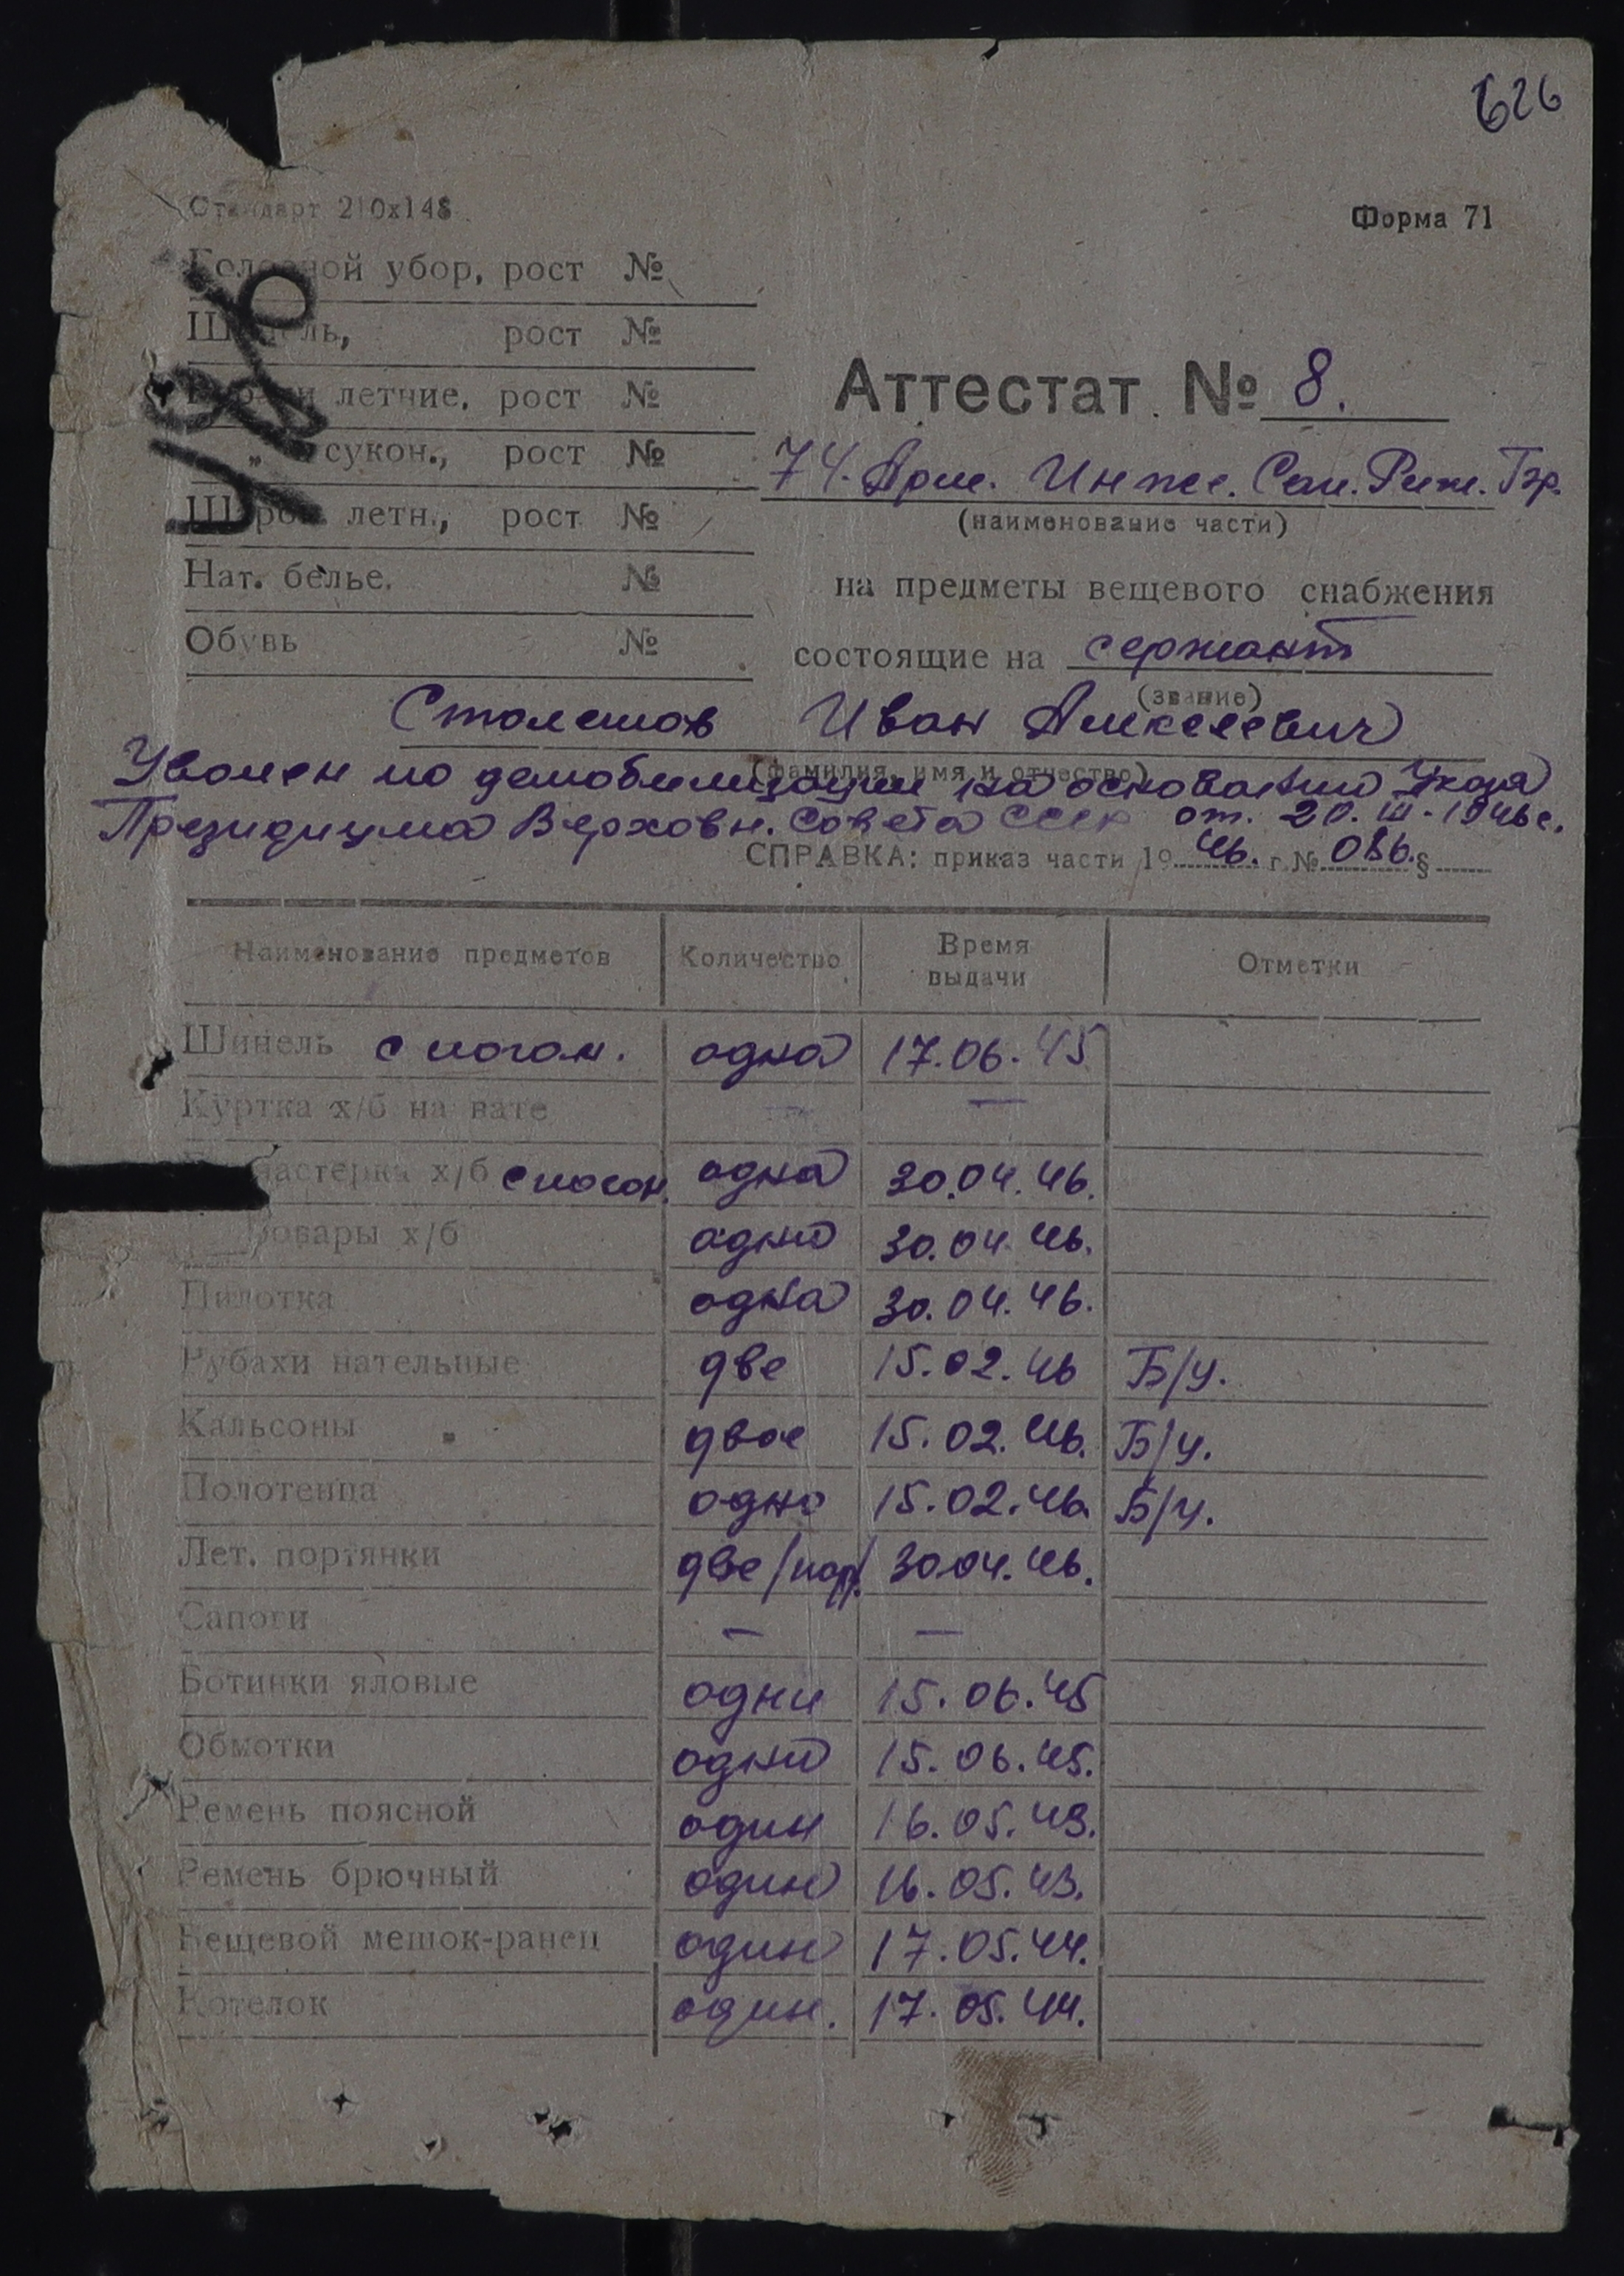 626
Стандарт 210х148
Форма 71
Головной убор, рост №
Шинель, рост №
летние, рост №
„ сукон., рост №
Шаров. летн., рост №
Нат. белье. №
Обувь №
Аттестат № 8.
74. Арм. Инже. Сап. Риж. Бр.
(наименование части)
на предметы вещевого снабжения
состоящие на сержант
(звание)
Столешов Иван Алексеевич
(фамилия, имя и отчество)
Уволен по демобилизации на основании Указа
Президиума Верховн. Совета СССР от. 20. III - 1946 г.
СПРАВКА: приказ части 19 46. г. № 086. §
Наименование предметов Количество Время выдачи Отметки
Шинель с погон. одна 17.06.45
Куртка х/б на вате — —
Гимнастерка х/б с погон. одна 30.04.46.
Шаровары х/б одни 30.04.46.
Пилотка одна 30.04.46.
Рубахи нательные две 15.02.46 Б/у.
Кальсоны двое 15.02.46. Б/у.
Полотенца одно 15.02.46. Б/у.
Лет. портянки две/пар. 30.04.46.
Сапоги — —
Ботинки яловые одни 15.06.45
Обмотки одни 15.06.45.
Ремень поясной один 16.05.43.
Ремень брючный один 16.05.43.
Вещевой мешок-ранец один 17.05.44.
Котелок один. 17.05.44.